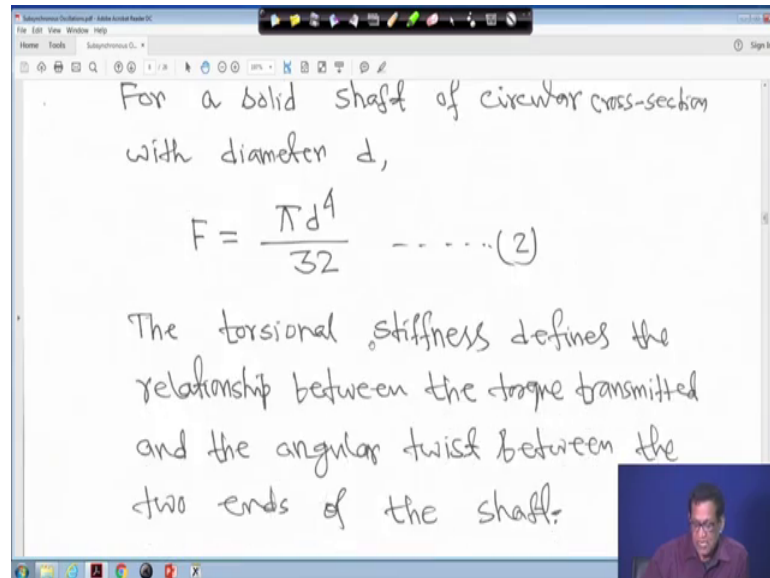 Subsynchronous Oscillations.pdf - Adobe Acrobat Reader DC
File Edit View Window Help
Home Tools Subsynchronous O... ×
Sign In
For a solid shaft of circular cross-section
with diameter d,
F = πd⁴/32 ------(2)
The torsional stiffness defines the
relationship between the torque transmitted
and the angular twist between the
two ends of the shaft.